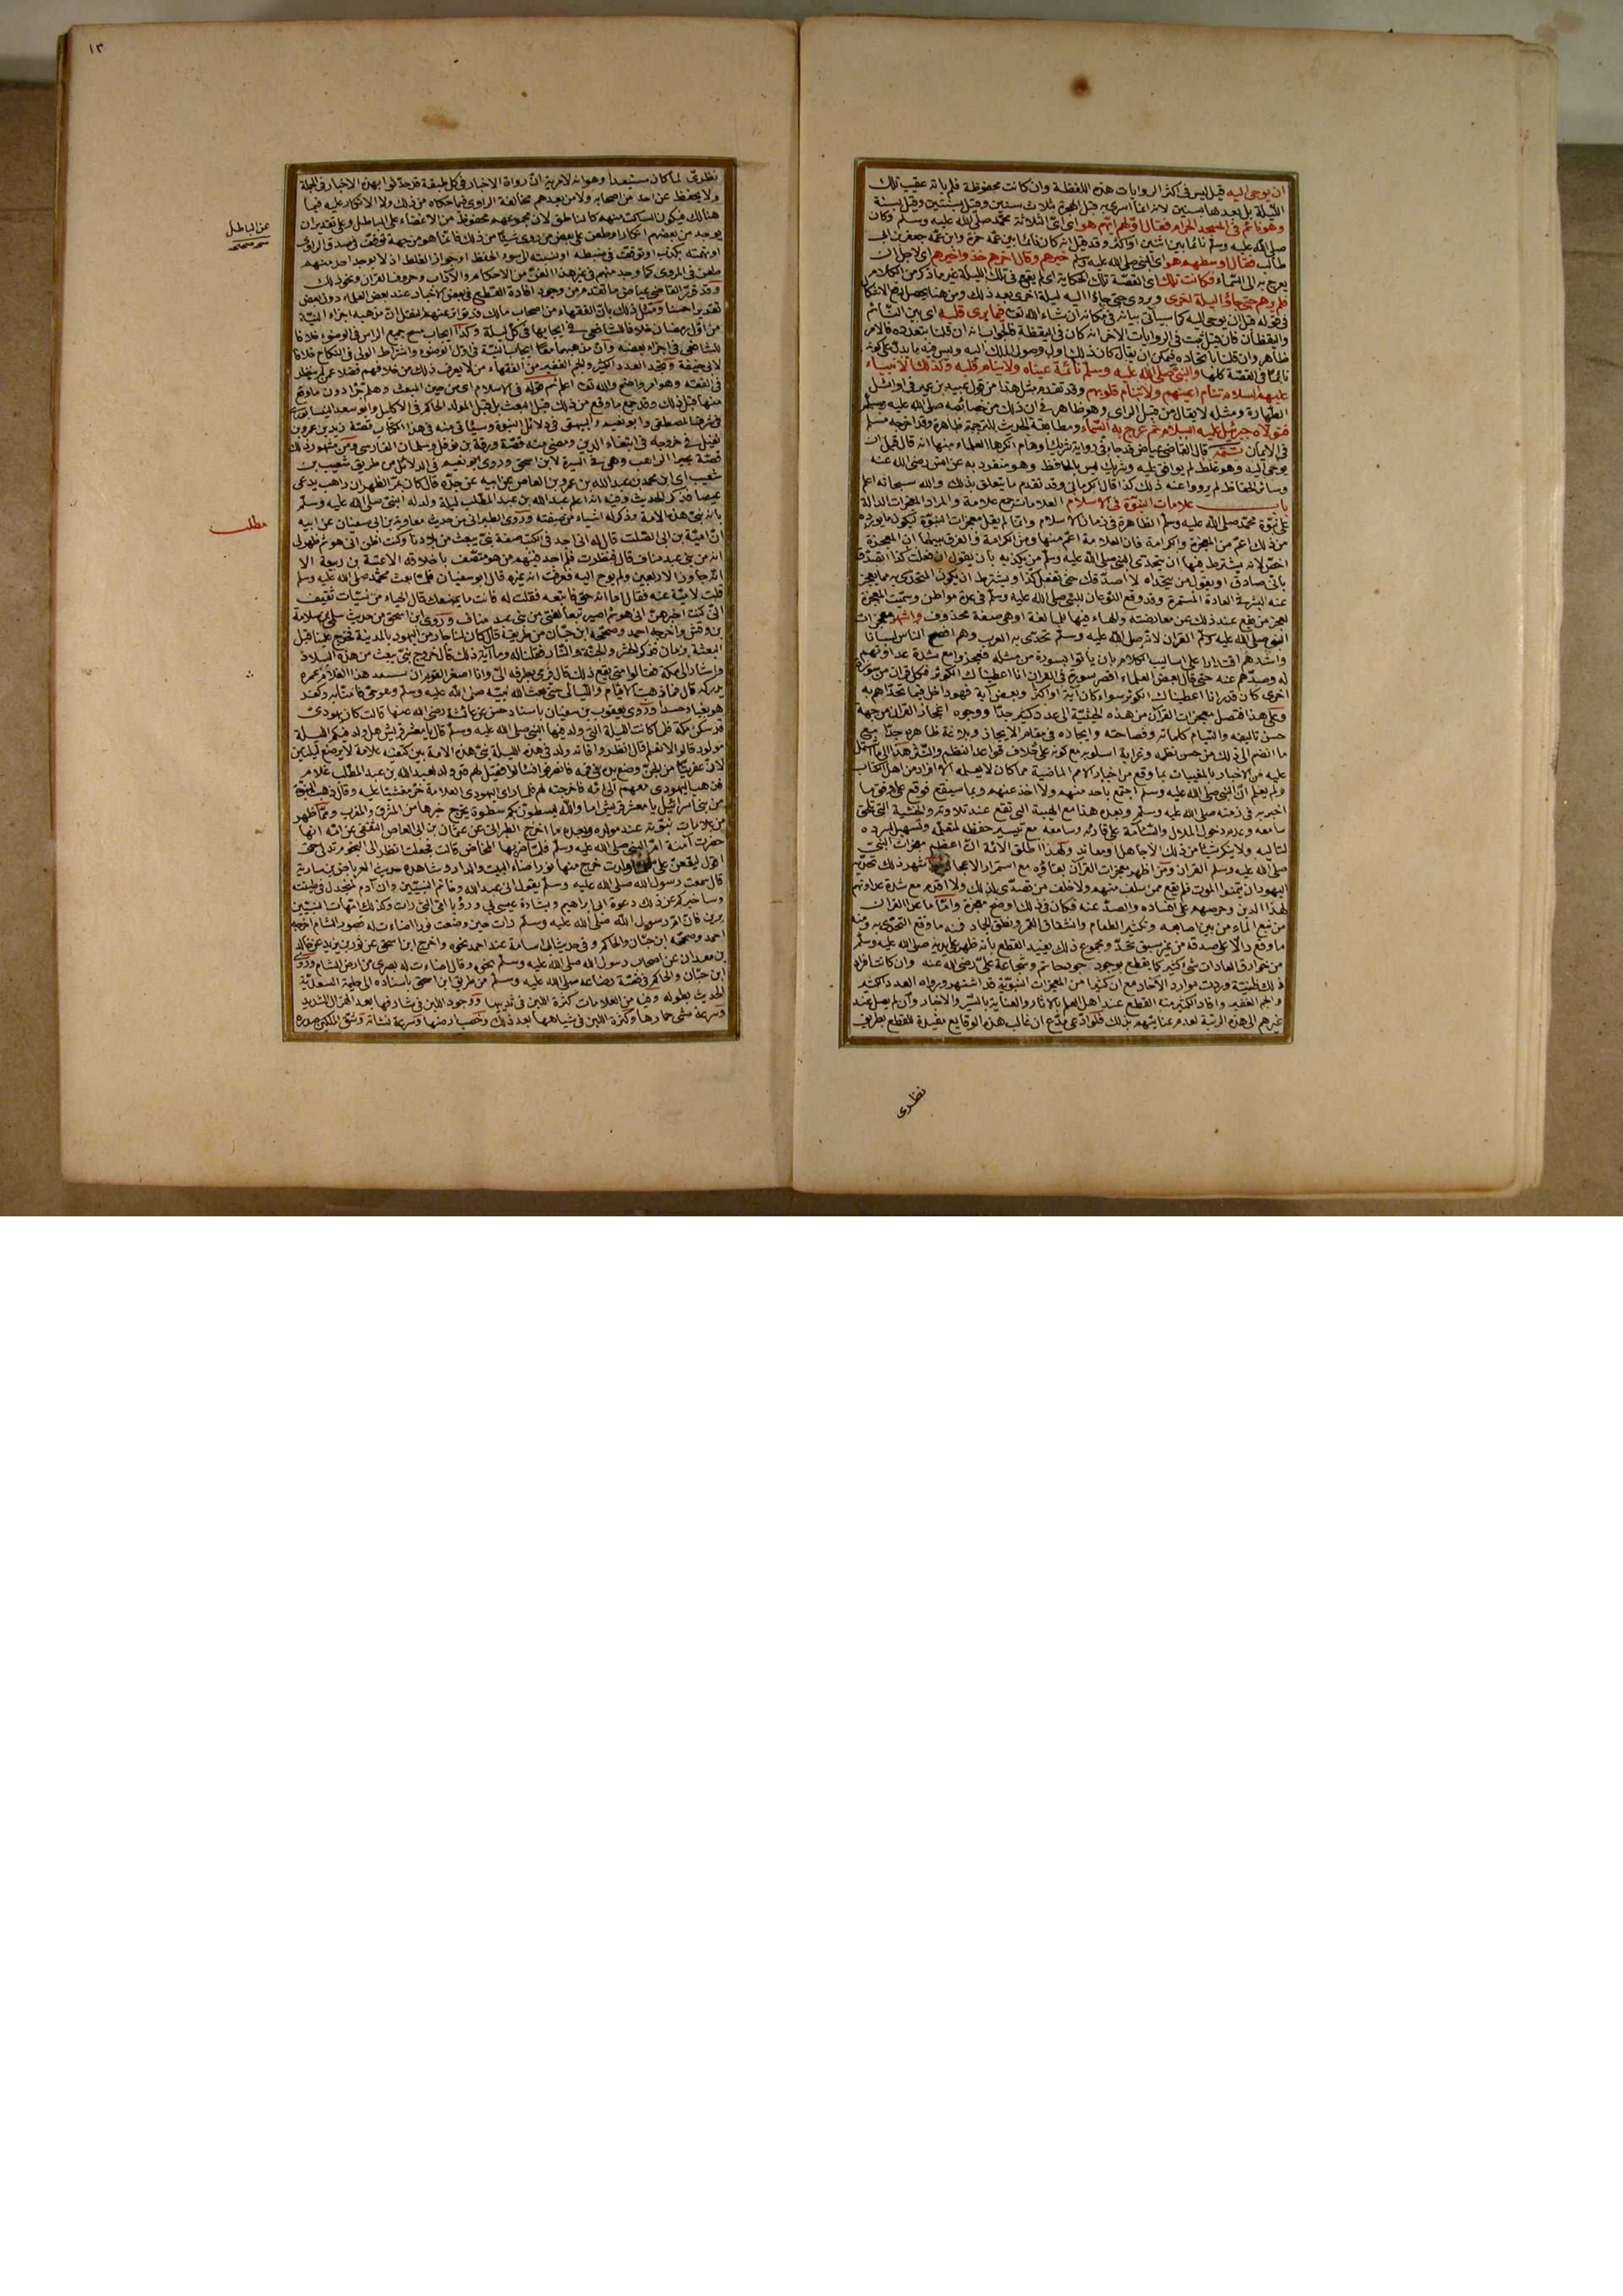 ان يوحى اليه قيل ليس في اكثر الروايات هذه اللفظة وان كانت محفوظة فلم ياته عقيب تلك
الليلة بل بعدها بسنين لانه انما اسرى به قبل الهجرة بثلاث سنين وقيل بسنتين وقيل بسنة
وهو نائم في المسجد الحرام فقال اولهم ايهم هو اي اي الثلاثة محمد صلى الله عليه وسلم وكان
صلى الله عليه وسلم نائما بين اثنين او اكثر وقد قيل انه كان نائما بين عمه حمزة وابن عمه جعفر بن ابي
طالب فقال اوسطهم هو اي النبي صلى الله عليه وسلم خيرهم وقال آخرهم خذوا خيرهم اي لاجل ان
يعرج به الى السماء فكانت تلك اي القصة تلك الحكاية اي لم يقع في تلك الليلة غير ما ذكر من الكلام
فلم يرهم حتى جاؤا ليلة اخرى
في قوله قبل ان يوحى اليه كما سياتي بيانه في مكانه ان شاء الله تعالى فيما يرى قلبه اي بين النائم
واليقظان فان قيل ثبت في الروايات الاخر انه كان في اليقظة فالجواب انه ان قلنا بتعدده فالامر
ظاهر وان قلنا باتحاده فيمكن ان يقال كان ذلك اول وصول الملك اليه وليس فيه ما يدل على كونه
نائما في القصة كلها والنبي صلى الله عليه وسلم نائمة عيناه ولا ينام قلبه وكذلك الانبياء
عليهم السلام تنام اعينهم ولا تنام قلوبهم وقد تقدم مثل هذا من قول عبيد بن عمير في اوائل
الطهارة ومثله لا يقال من قبل الراي وهو ظاهر في ان ذلك من خصائصه صلى الله عليه وسلم
فتولاه جبرئيل عليه السلام ثم عرج به الى السماء ومطابقة الحديث للترجمة ظاهرة وقد اخرجه مسلم
في الايمان تتمة قال القاضي عياض قد جاء في رواية شريك اوهام انكرها العلماء منها انه قال قبل ان
يوحى اليه وهو غلط لم يوافق عليه وشريك ليس بالحافظ وهو منفرد به عن انس رضي الله عنه
وسائر الحفاظ لم يرووا عنه ذلك كذا قال الكرماني وقد تقدم ما يتعلق بذلك والله سبحانه اعلم
باب علامات النبوة في الاسلام العلامات جمع علامة والمراد المعجزات الدالة
على نبوة محمد صلى الله عليه وسلم الظاهرة في زمان الاسلام وانما لم يقل معجزات النبوة ليكون ما يورده
من ذلك اعم من المعجزة والكرامة فان العلامة اعم منها ومن الكرامة والفرق بينهما ان المعجزة
اخص لانه يشترط فيها ان يتحدى النبي صلى الله عليه وسلم من يكذبه بان يقول ان فعلت كذا اتصدق
باني صادق او يقول من يتحداه لا اصدقك حتى تفعل كذا ويشترط ان يكون المتحدى به مما يعجز
عنه البشر في العادة المستمرة وقد وقع النوعان للنبي صلى الله عليه وسلم في عدة مواطن وسميت المعجزة
لعجز من يقع عندهم ذلك عن معارضته والهاء فيها للمبالغة او هي صفة محذوف واشهر معجزات
النبي صلى الله عليه وسلم القرآن لانه صلى الله عليه وسلم تحدى به العرب وهم افصح الناس لسانا
واشدهم اقتدارا على اساليب الكلام بان ياتوا بسورة من مثله فعجزوا مع شدة عداوتهم
له وصدهم عنه حتى قال بعض العلماء اقصر سورة في القرآن انا اعطيناك الكوثر فكل قرآن من سورة
اخرى كان قدر انا اعطيناك الكوثر سواء كان آية او اكثر او بعض آية فهو داخل فيما تحداهم به
وعلى هذا فتصل معجزات القرآن من هذه الحيثية الى عدد كثير جدا ووجوه اعجاز القرآن من جهة
حسن تاليفه والتيام كلماته وفصاحته وايجازه في مقام الايجاز وبلاغته ظاهرة جدا مع
ما انضم الى ذلك من حسن نظمه وغرابة اسلوبه مع كونه على خلاف قواعد النظم والنثر هذا الى ما اشتمل
عليه من الاخبار بالمغيبات مما وقع من اخبار الامم الماضية مما كان لا يعلمه الا افراد من اهل الكتاب
ولم يعلم ان النبي صلى الله عليه وسلم اجتمع باحد منهم ولا اخذ عنهم وبما سيقع فوقع على وفق ما
اخبر به في زمنه صلى الله عليه وسلم وبعده هذا مع الهيبة التي تقع عند تلاوته والخشية التي تلحق
سامعه وعدم دخول الملال والسآمة على قارئه وسامعه مع تيسير حفظه لمتعلمه وتسهيل سرده
لتاليه ولا ينكر شيئا من ذلك الا جاهل او معاند ولهذا اطلق الائمة ان اعظم معجزات النبي
صلى الله عليه وسلم القرآن ومن اظهر معجزات القرآن بقاؤه مع استمرار الاعجاز
اليهود ان يتمنوا الموت فلم يقع ممن سلف منهم ولا خلف من تصدى لذلك ولا اقدم مع شدة عداوتهم
لهذا الدين وحرصهم على افساده والصد عنه فكان في ذلك اوضح معجزة واما ما عدا القرآن
من نبع الماء من بين اصابعه وتكثير الطعام وانشقاق القمر ونطق الجماد فمنه ما وقع التحدي به ومنه
ما وقع دالا على صدقه من غير سبق تحد ومجموع ذلك يفيد القطع بانه ظهر على يديه صلى الله عليه وسلم
من خوارق العادات شيء كثير كما يقطع بوجود جود حاتم وشجاعة علي رضي الله عنه وان كانت افراد
ذلك ظنية وردت موارد الآحاد مع ان كثيرا من المعجزات النبوية قد اشتهر ورواه العدد الكثير
والجم الغفير وافاد الكثير منه القطع عند اهل العلم بالآثار والعناية بالسير والاخبار وان لم يصل عند
غيرهم الى هذه الرتبة لعدم عنايتهم بذلك فلو ادعى مدع ان غالب هذه الوقايع مفيدة للقطع بطريق
نظري
١٣
نظري لما كان مستبعدا وهو انه لا مرية ان رواة الاخبار في كل طبقة قد حدثوا بهذه الاخبار في الجملة
ولا يحفظ عن احد من اصحابه ولا من بعدهم مخالفة الراوي فيما حكاه من ذلك ولا الانكار عليه فيما
هنالك فيكون الساكت منهم كالناطق لان مجموعهم محفوظ من الاغضاء على الباطل وعلى تقدير ان
يوجد من بعضهم انكار او طعن على بعض من روى شيئا من ذلك فانما هو من جهة توقف في صدق الراوي
او تهمته بكذب او توقف في ضبطه او نسبته الى سوء الحفظ او جواز الغلط اذ لا يوجد احد منهم
طعن في المروي كما وجد منهم في غير هذا الفن من الاحكام والآداب وحروف القرآن ونحو ذلك
وقد قرر القاضي عياض ما تقدم من وجود افادة القطع في بعض الاخبار عند بعض العلماء دون بعض
تقديرا حسنا ومثل ذلك بان الفقهاء من اصحاب مالك قد تواتر عنهم النقل ان مذهبه اجزاء النية
من اول رمضان خلافا للشافعي في ايجابها في كل ليلة وكذا ايجاب مسح جميع الراس في الوضوء خلافا
للشافعي في اجزاء بعضه وان مذهبهما معا ايجاب النية في اول الوضوء واشتراط الولي في النكاح خلافا
لابي حنيفة وتجد العدد الكثير والجم الغفير من الفقهاء من لا يعرف ذلك من خلافهم فضلا عمن لم ينظر
في الفقه وهو امر واضح والله تعالى اعلم ثم قوله في الاسلام اي من حين المبعث وهلم جرا دون ما وقع
منها قبل ذلك وقد جمع ما وقع من ذلك قبل المبعث بل قبل المولد الحاكم في الاكليل وابو سعد النيسابوري
في شرف المصطفى وابو نعيم والبيهقي في دلائل النبوة وسياتي منه في هذا الكتاب قصة زيد بن عمرو بن
نفيل في خروجه في ابتغاء الدين ومضى منه قصة ورقة بن نوفل وسلمان الفارسي ومن مشهور ذلك
قصة بحيرا الراهب وهي في السيرة لابن اسحق وروى ابو نعيم في الدلائل من طريق شعيب بن
شعيب اي ابن محمد بن عبد الله بن عمرو بن العاص عن ابيه عن جده قال كان بمر الظهران راهب يدعى
عيصا فذكر الحديث وفيه انه اعلم عبد الله بن عبد المطلب ليلة ولد له النبي صلى الله عليه وسلم
بانه نبي هذه الامة وذكر له اشياء من صفته وروى الطبراني من حديث معاوية بن ابي سفيان عن ابيه
ان امية بن ابي الصلت قال له اني اجد في الكتب صفة نبي يبعث من بلادنا وكنت اظن اني هو ثم ظهر لي
انه من بني عبد مناف قال فنظرت فلم اجد فيهم من هو متصف باخلاقه الا عتبة بن ربيعة الا
انه جاوز الاربعين ولم يوح اليه فعرفت انه غيره قال ابو سفيان فلما بعث محمد صلى الله عليه وسلم
قلت لامية عنه فقال اما انه حق فاتبعه فقلت له فانت ما يمنعك قال الحياء من نسيات ثقيف
اني كنت اخبرهن اني هو ثم اصير تبعا لفتى من بني عبد مناف وروى ابن اسحق من حديث سلمة بن سلامة
بن وقش واخرجه احمد وصححه ابن حبان من طريقه قال كان لنا جار من اليهود بالمدينة فخرج علينا قبل
البعثة بزمان فذكر الحشر والجنة والنار فقلنا له وما آية ذلك قال خروج نبي يبعث من هذه البلاد
واشار الى مكة فقالوا متى يقع ذلك قال فرمى بطرفه الي وانا اصغر القوم ان يستنفد هذا الغلام عمره
يدركه قال فما ذهبت الايام والليالي حتى بعث الله نبيه صلى الله عليه وسلم وهو حي فآمنا به وكفر
هو بغيا وحسدا وروى يعقوب بن سفيان باسناد حسن عن عائشة رضي الله عنها قالت كان يهودي
قد سكن مكة فلما كانت الليلة التي ولد فيها النبي صلى الله عليه وسلم قال يا معشر قريش هل ولد فيكم الليلة
مولود قالوا لا نعلم قال انظروا فانه ولد في هذه الليلة نبي هذه الامة بين كتفيه علامة لا يرضع ليلتين
لان عفريتا من الجن وضع يده على فمه فانصرفوا فسالوا فقيل لهم قد ولد لعبد الله بن عبد المطلب غلام
فذهب اليهودي معهم الى امه فاخرجته لهم فلما راى اليهودي العلامة خر مغشيا عليه وقال ذهبت النبوة
من بني اسرائيل يا معشر قريش اما والله ليسطون بكم سطوة يخرج خبرها من المشرق والمغرب ومما ظهر
من علامات نبوته عند مولده وبعده ما اخرج الطبراني عن عثمان بن ابي العاص الثقفي عن امه انها
حضرت آمنة ام النبي صلى الله عليه وسلم فلما ضربها المخاض قالت فجعلت انظر الى النجوم تدلى حتى
اقول ليقعن علي فلما ولدت خرج منها نور اضاء له البيت والدار وشاهده حديث العرباض بن سارية
قال سمعت رسول الله صلى الله عليه وسلم يقول اني عبد الله وخاتم النبيين وان آدم لمنجدل في طينته
وساخبركم عن ذلك دعوة ابي ابراهيم وبشارة عيسى بي ورؤيا امي التي رات وكذلك امهات النبيين
يرين فان ام رسول الله صلى الله عليه وسلم رات حين وضعت نورا اضاءت له قصور الشام اخرجه
احمد وصححه ابن حبان والحاكم وفي حديث ابي امامة عند احمد نحوه واخرج ابن اسحق عن ثور بن يزيد عن خالد
بن معدان عن اصحاب رسول الله صلى الله عليه وسلم نحوه وقال اضاءت له بصرى من ارض الشام وروى
ابن حبان والحاكم في قصة رضاعه صلى الله عليه وسلم من طريق ابن اسحق باسناده الى حليمة السعدية
الحديث بطوله وفيه من العلامات كثرة اللبن في ثدييها ووجود اللبن في شارفها بعد الهزال الشديد
وسرعة مشي حمارها وكثرة اللبن في شياهها بعد ذلك وخصب ارضها وسرعة نشاته وشق الملكين صدره
عن الباطل
مطلب